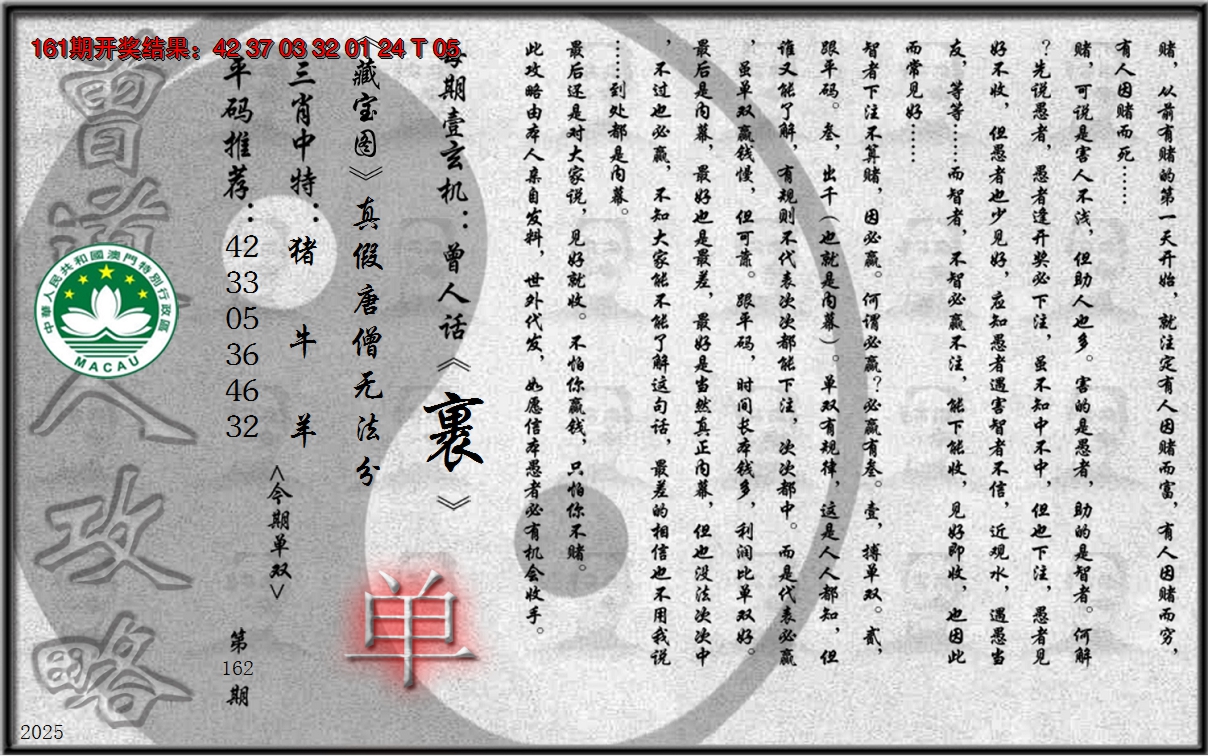 161期开奖结果：42 37 03 32 01 24 T 05
赌，从前有赌的第一天开始，就注定有人因赌而富，有人因赌而穷，
有人因赌而死……
赌，可说是害人不浅，但助人也多。害的是愚者，助的是智者。何解
？先说愚者，愚者逢开奖必下注，虽不知中不中，但也下注，愚者见
好不收，但愚者也少见好，应知愚者遇害智者不信，近观水，遇愚当
友，等等……而智者，不智必赢不注，能下能收，见好即收，也因此
而常见好……
智者下注不算赌，因必赢。何谓必赢？必赢有叁。壹，搏单双。贰，
跟平码。叁，出千（也就是内幕）。单双有规律，这是人人都知，但
谁又能了解，有规则不代表次次都能下注，次次都中。而是代表必赢
，虽单双赢钱慢，但可靠。跟平码，时间长本钱多，利润比单双好。
最后是内幕，最好也是最差，最好是当然真正内幕，但也没法次次中
，不过也必赢，不知大家能不能了解这句话，最差的相信也不用我说
……到处都是内幕。
最后还是对大家说，见好就收。不怕你赢钱，只怕你不赌。
此攻略由本人亲自发料，世外代发，如愿信本愚者必有机会收手。
每期壹玄机：曾人话《裹》
《藏宝图》真假唐僧无法分
三肖中特：猪 牛 羊
平码推荐：42 33 05 36 46 32
<今期单双>
单
第162期
曾道人攻略
中華人民共和國澳門特別行政區
MACAU
2025